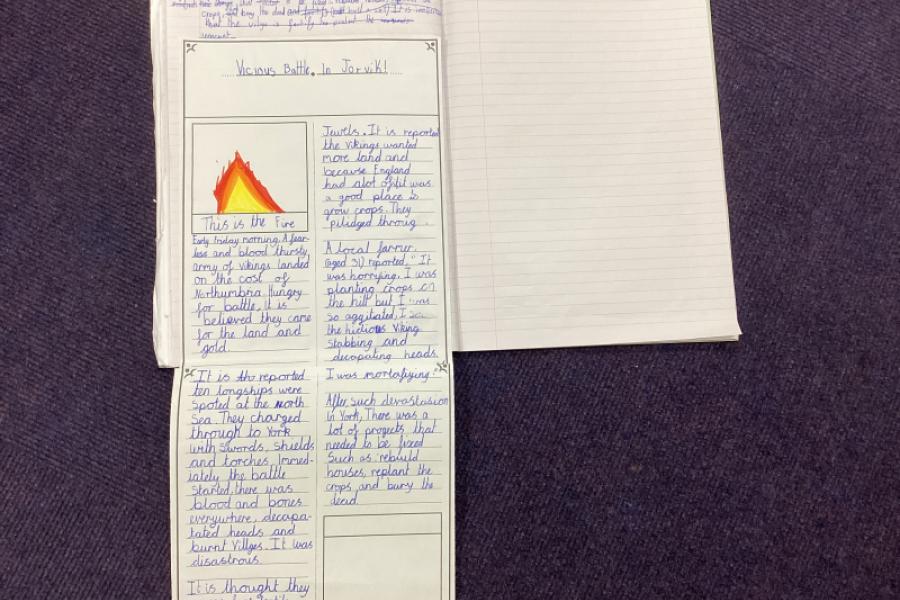 Vicious Battle. In Jorvik!
This is the Fire
Early friday morning. A fear-
less and blood thirsty
army of vikings landed
on the cost of
Northumbria Hungry
for battle. It is
believed they came
for the land and
gold.
It is reported
ten longships were
spoted at the north
Sea. They charged
through to York
with swords, shields
and torches. Immed-
iately the battle
started, there was
blood and bones
everywhere, decapa-
tated heads and
burnt Villges. It was
disastrous.
It is thought they
Jewels. It is reported
the vikings wanted
more land and
because England
had alot of it was
a good place to
grow crops. They
pilidged throug.
A local farmer,
(aged 31) reported, "It
was horrifying. I was
planting crops on
the hill but I was
so aggitated, I
the hidious Viking
stabbing and
decapating heads.
I was mortafiying."
After such devastasion
in York, There was a
lot of progects, that
needed to be fixed
Such as rebuild
houses, replant the
crops and bury the
dead.